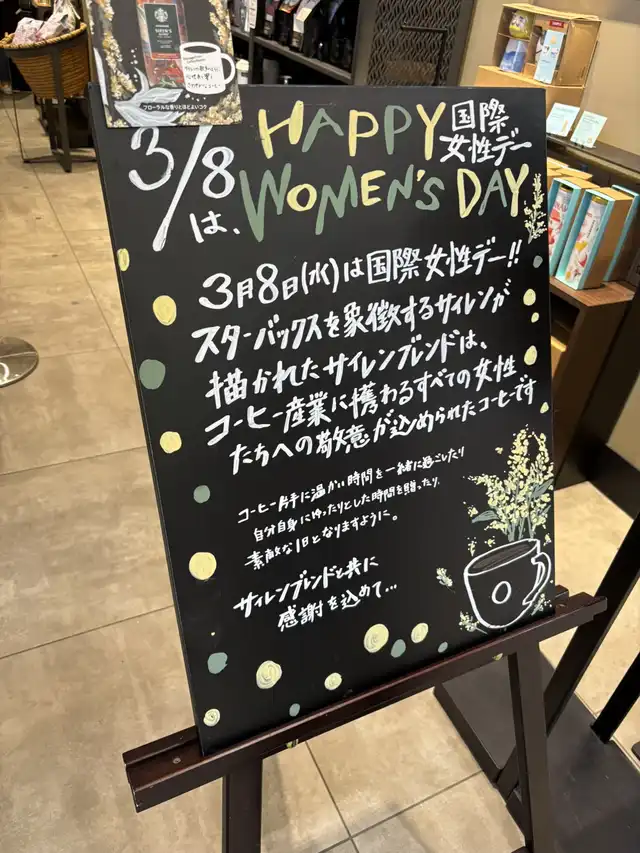 STARBUCKS
SIREN'S
フローラルな香りとほどよいコク
3/8
は、
HAPPY 国際
女性デー
WOMEN'S DAY
3月8日(水)は国際女性デー!!
スターバックスを象徴するサイレンが
描かれたサイレンブレンドは、
コーヒー産業に携わるすべての女性
たちへの敬意が込められたコーヒーです
コーヒー片手に温かい時間を一緒に過ごしたり
自分自身にゆったりとした時間を贈ったり、
素敵な1日となりますように。
サイレンブレンドと共に
感謝を込めて…